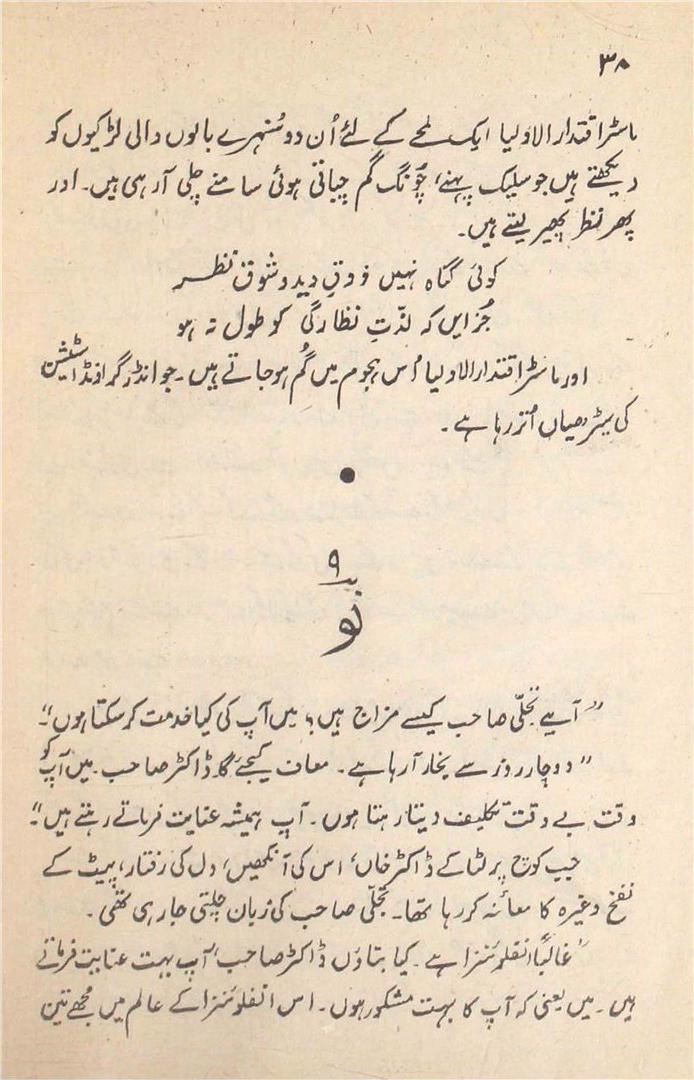 ۳۸
ماسٹر اقتدار الاولیا ایک لمحے کے لئے اُن دو سُنہرے بالوں والی لڑکیوں کو
دیکھتے ہیں جو سلیک پہنے، چُونگ گم چباتی ہوئی سامنے چلی آرہی ہیں۔ اور
پھر نظر پھیر لیتے ہیں۔
کوئی گناہ نہیں ذوقِ دید و شوقِ نظر
جُز ایں کہ لذّتِ نظارگی کو طول نہ ہو
اور ماسٹر اقتدار الاولیا اُس ہجوم میں گُم ہوجاتے ہیں۔ جو انڈر گراؤنڈ اسٹیشن
کی سیڑھیاں اُتر رہا ہے۔
●
۹
نو
”آیئے تجلّی صاحب کیسے مزاج ہیں؟ میں آپ کی کیا خدمت کرسکتا ہوں“۔
”دوچار روز سے بخار آرہا ہے۔ معاف کیجئے گا ڈاکٹر صاحب۔ میں آپ کو
وقت بے وقت تکلیف دیتا رہتا ہوں۔ آپ ہمیشہ عنایت فرماتے رہتے ہیں“۔
جب کوچ پر لٹا کے ڈاکٹر خاں، اس کی آنکھیں، دل کی رفتار، پیٹ کے
نفخ وغیرہ کا معائنہ کررہا تھا۔ تجلّی صاحب کی زبان چلتی جارہی تھی۔
”غالباً انفلوئنزا ہے۔ کیا بتاؤں ڈاکٹر صاحب، آپ بہت عنایت فرماتے
ہیں۔ میں یعنی کہ آپ کا بہت مشکور ہوں۔ اس انفلوئنزا کے عالم میں مُجھے تین